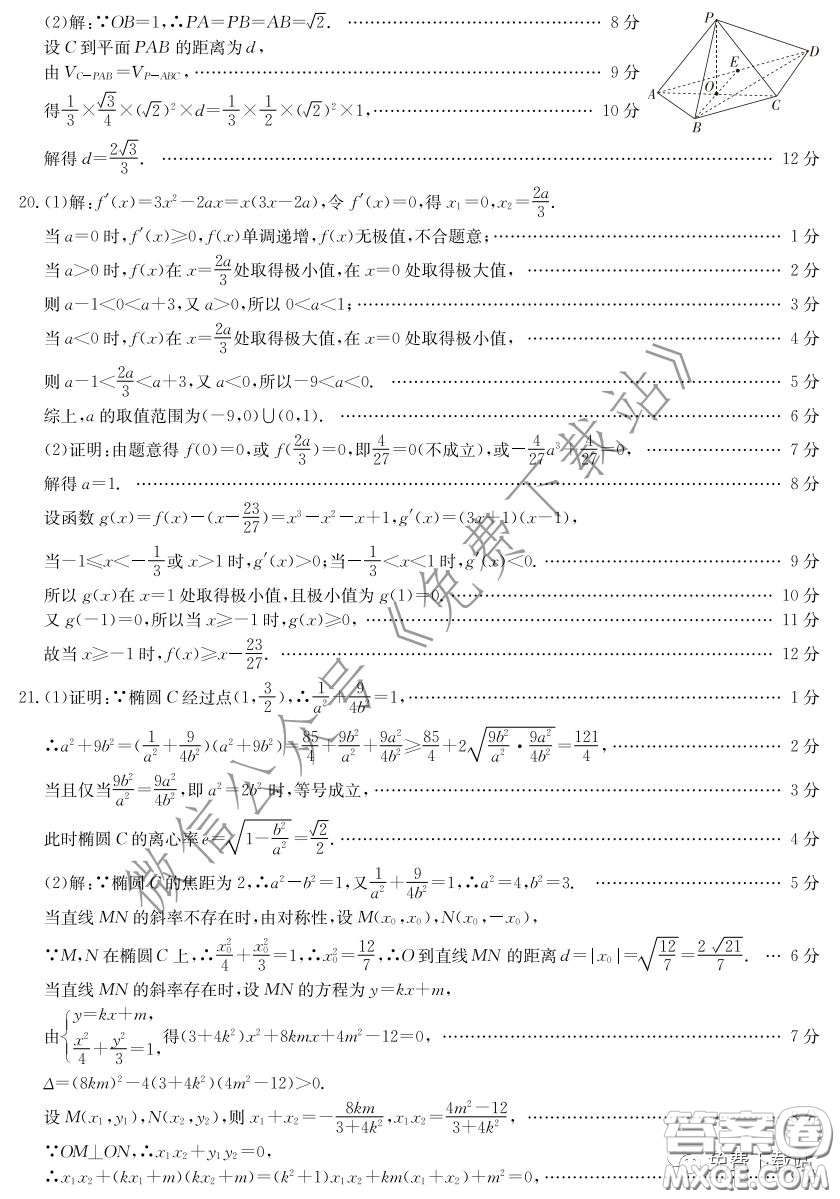 (2)解:∵OB=1,∴PA=PB=AB=√2. …… 8分
设C到平面PAB的距离为d,
由V_{C-PAB}=V_{P-ABC}, …… 9分
得1/3×√3/4×(√2)²×d=1/3×1/2×(√2)²×1, …… 10分
解得d=2√3/3. …… 12分
P
D
E
A
O
C
B
20.(1)解:f′(x)=3x²-2ax=x(3x-2a),令f′(x)=0,得x₁=0,x₂=2a/3.
当a=0时,f′(x)≥0,f(x)单调递增,f(x)无极值,不合题意; …… 1分
当a>0时,f(x)在x=2a/3处取得极小值,在x=0处取得极大值, …… 2分
则a-1<0<a+3,又a>0,所以0<a<1; …… 3分
当a<0时,f(x)在x=2a/3处取得极大值,在x=0处取得极小值, …… 4分
则a-1<2a/3<a+3,又a<0,所以-9<a<0. …… 5分
综上,a的取值范围为(-9,0)∪(0,1). …… 6分
(2)证明:由题意得f(0)=0,或f(2a/3)=0,即4/27=0(不成立),或-4/27a³+4/27=0, …… 7分
解得a=1. …… 8分
设函数g(x)=f(x)-(x-23/27)=x³-x²-x+1,g′(x)=(3x+1)(x-1),
当-1≤x<-1/3或x>1时,g′(x)>0;当-1/3<x<1时,g′(x)<0. …… 9分
所以g(x)在x=1处取得极小值,且极小值为g(1)=0. …… 10分
又g(-1)=0,所以当x≥-1时,g(x)≥0, …… 11分
故当x≥-1时,f(x)≥x-23/27. …… 12分
21.(1)证明:∵椭圆C经过点(1,3/2),∴1/a²+9/4b²=1, …… 1分
∴a²+9b²=(1/a²+9/4b²)(a²+9b²)=85/4+9b²/a²+9a²/4b²≥85/4+2√(9b²/a²·9a²/4b²)=121/4, …… 2分
当且仅当9b²/a²=9a²/4b²,即a²=2b²时,等号成立, …… 3分
此时椭圆C的离心率e=√(1-b²/a²)=√2/2. …… 4分
(2)解:∵椭圆C的焦距为2,∴a²-b²=1,又1/a²+9/4b²=1,∴a²=4,b²=3. …… 5分
当直线MN的斜率不存在时,由对称性,设M(x₀,x₀),N(x₀,-x₀),
∵M,N在椭圆C上,∴x₀²/4+x₀²/3=1,∴x₀²=12/7,∴O到直线MN的距离d=|x₀|=√(12/7)=2√21/7. … 6分
当直线MN的斜率存在时,设MN的方程为y=kx+m,
由{y=kx+m, x²/4+y²/3=1,得(3+4k²)x²+8kmx+4m²-12=0, …… 7分
Δ=(8km)²-4(3+4k²)(4m²-12)>0.
设M(x₁,y₁),N(x₂,y₂),则x₁+x₂=-8km/(3+4k²),x₁x₂=(4m²-12)/(3+4k²), ……
∵OM⊥ON,∴x₁x₂+y₁y₂=0,
∴x₁x₂+(kx₁+m)(kx₂+m)=(k²+1)x₁x₂+km(x₁+x₂)+m²=0, ……
微信公众号《免费下载站》
答案圈
免费下载站
MXQE.COM